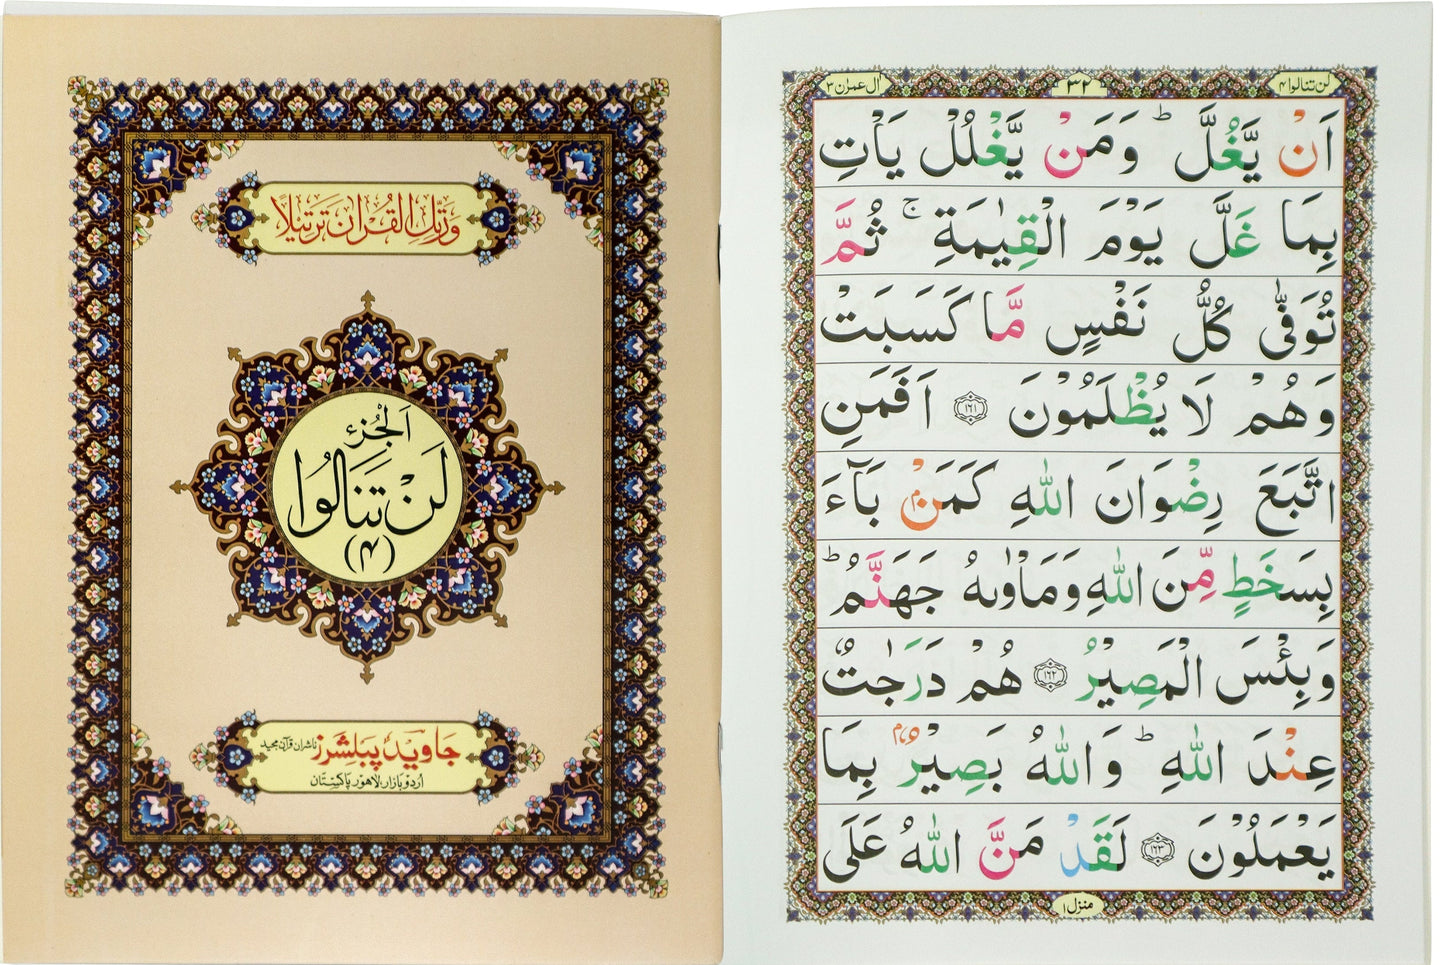 وَرَتِّلِ الْقُرْاٰنَ تَرْتِيْلًا
اَلْجُزْءُ
لَنْ تَنَالُوا
(۴)
جاوید پبلشرز ناشران قرآن مجید
اُردو بازار، لاہور پاکستان
لن تنالوا ۴
۳۲
اٰل عمرٰن ۳
اَنْ يَّغُلَّ ؕ وَمَنْ يَّغْلُلْ يَاْتِ
بِمَا غَلَّ يَوْمَ الْقِيٰمَةِ ۚ ثُمَّ
تُوَفّٰى كُلُّ نَفْسٍ مَّا كَسَبَتْ
وَهُمْ لَا يُظْلَمُوْنَ ۱۶۱ اَفَمَنِ
اتَّبَعَ رِضْوَانَ اللّٰهِ كَمَنْۢ بَآءَ
بِسَخَطٍ مِّنَ اللّٰهِ وَمَاْوٰىهُ جَهَنَّمُ ؕ
وَبِئْسَ الْمَصِيْرُ ۱۶۲ هُمْ دَرَجٰتٌ
عِنْدَ اللّٰهِ ؕ وَاللّٰهُ بَصِيْرٌۢ بِمَا
يَعْمَلُوْنَ ۱۶۳ لَقَدْ مَنَّ اللّٰهُ عَلَى
منزل ۱